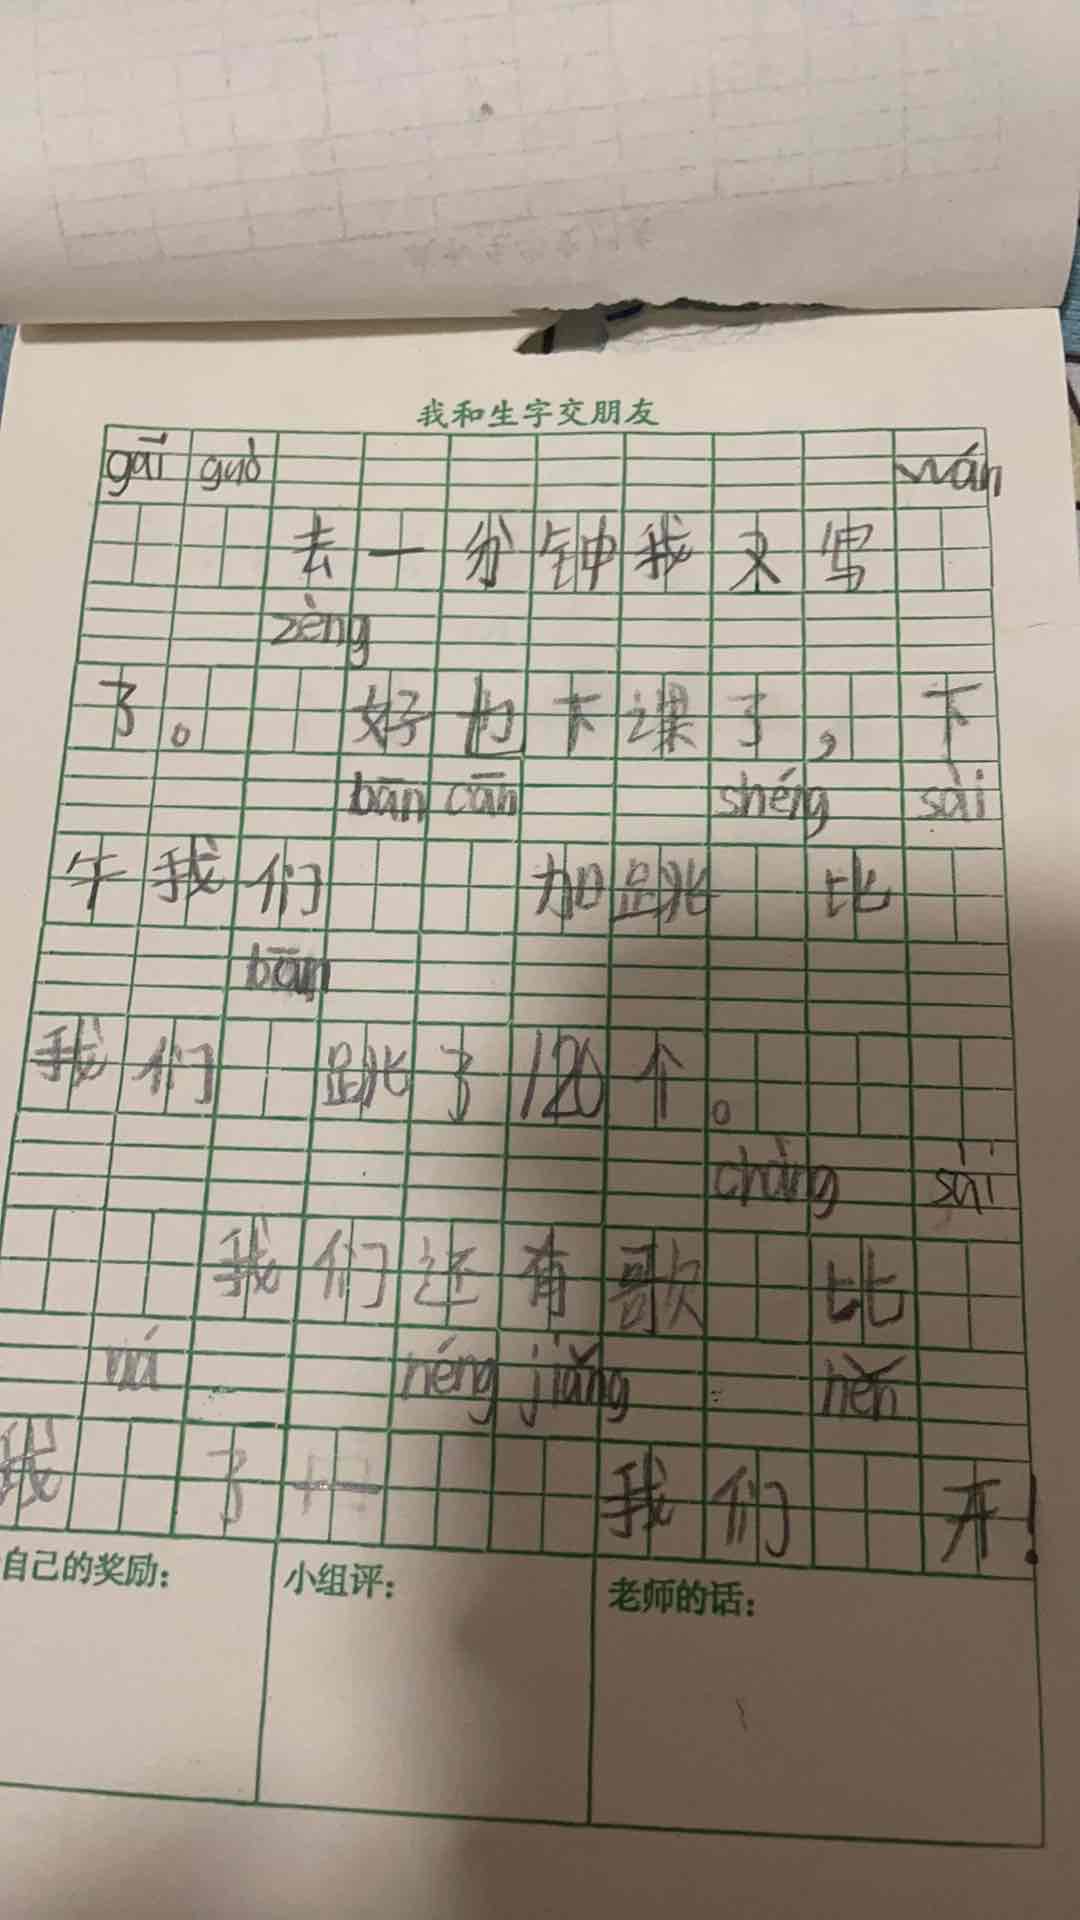 我和生字交朋友
gāi guò wán
去一分钟我又写
zèng
了。 好也下课了，下
bān cān shéng sài
午我们 加跳 比
bān
我们 跳了120个。
chàng sài
我们还有歌 比
ná néng jiǎng hěn
我 了一 我们 开！
自己的奖励： 小组评： 老师的话：